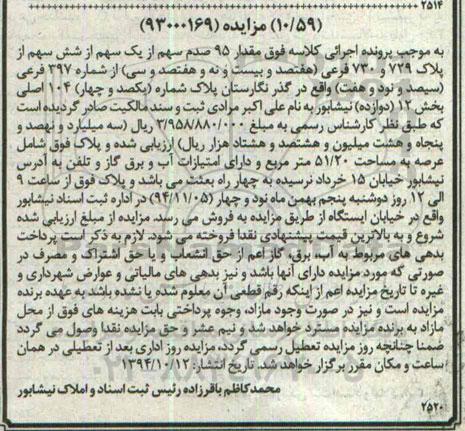 ۲۵۱۴
(۱۰/۵۹) مزایده (۹۳۰۰۰۱۶۹)
به موجب پرونده اجرائی کلاسه فوق مقدار ۹۵ صدم سهم از یک سهم از شش سهم از
پلاک ۷۲۹ و ۷۳۰ فرعی (هفتصد و بیست و نه و هفتصد و سی) از شماره ۳۹۷ فرعی
(سیصد و نود و هفت) واقع در گذر نگارستان پلاک شماره (یکصد و چهار) ۱۰۴ اصلی
بخش ۱۲ (دوازده) نیشابور به نام علی اکبر مرادی ثبت و سند مالکیت صادر گردیده است
که طبق نظر کارشناس رسمی به مبلغ ۳/۹۵۸/۸۸۰/۰۰۰ ریال (سه میلیارد و نهصد و
پنجاه و هشت میلیون و هشتصد و هشتاد هزار ریال) ارزیابی شده و پلاک فوق شامل
عرصه به مساحت ۵۱/۲۰ متر مربع و دارای امتیازات آب و برق گاز و تلفن به آدرس
نیشابور خیابان ۱۵ خرداد نرسیده به چهار راه بعثت می باشد و پلاک فوق از ساعت ۹
الی ۱۲ روز دوشنبه پنجم بهمن ماه نود و چهار (۹۴/۱۱/۰۵) در اداره ثبت اسناد نیشابور
واقع در خیابان ایستگاه از طریق مزایده به فروش می رسد. مزایده از مبلغ ارزیابی شده
شروع و به بالاترین قیمت پیشنهادی نقدا فروخته می شود. لازم به ذکر است پرداخت
بدهی های مربوط به آب، برق، گاز اعم از حق انشعاب و یا حق اشتراک و مصرف در
صورتی که مورد مزایده دارای آنها باشد و نیز بدهی های مالیاتی و عوارض شهرداری و
غیره تا تاریخ مزایده اعم از اینکه رقم قطعی آن معلوم شده یا نشده باشد به عهده برنده
مزایده است و نیز در صورت وجود مازاد، وجوه پرداختی بابت هزینه های فوق از محل
مازاد به برنده مزایده مسترد خواهد شد و نیم عشر و حق مزایده نقدا وصول می گردد
ضمنا چنانچه روز مزایده تعطیل رسمی گردد، مزایده روز اداری بعد از تعطیلی در همان
ساعت و مکان مقرر برگزار خواهد شد. تاریخ انتشار: ۱۳۹۴/۱۰/۱۲
محمد کاظم باقرزاده رئیس ثبت اسناد و املاک نیشابور
۲۵۲۰